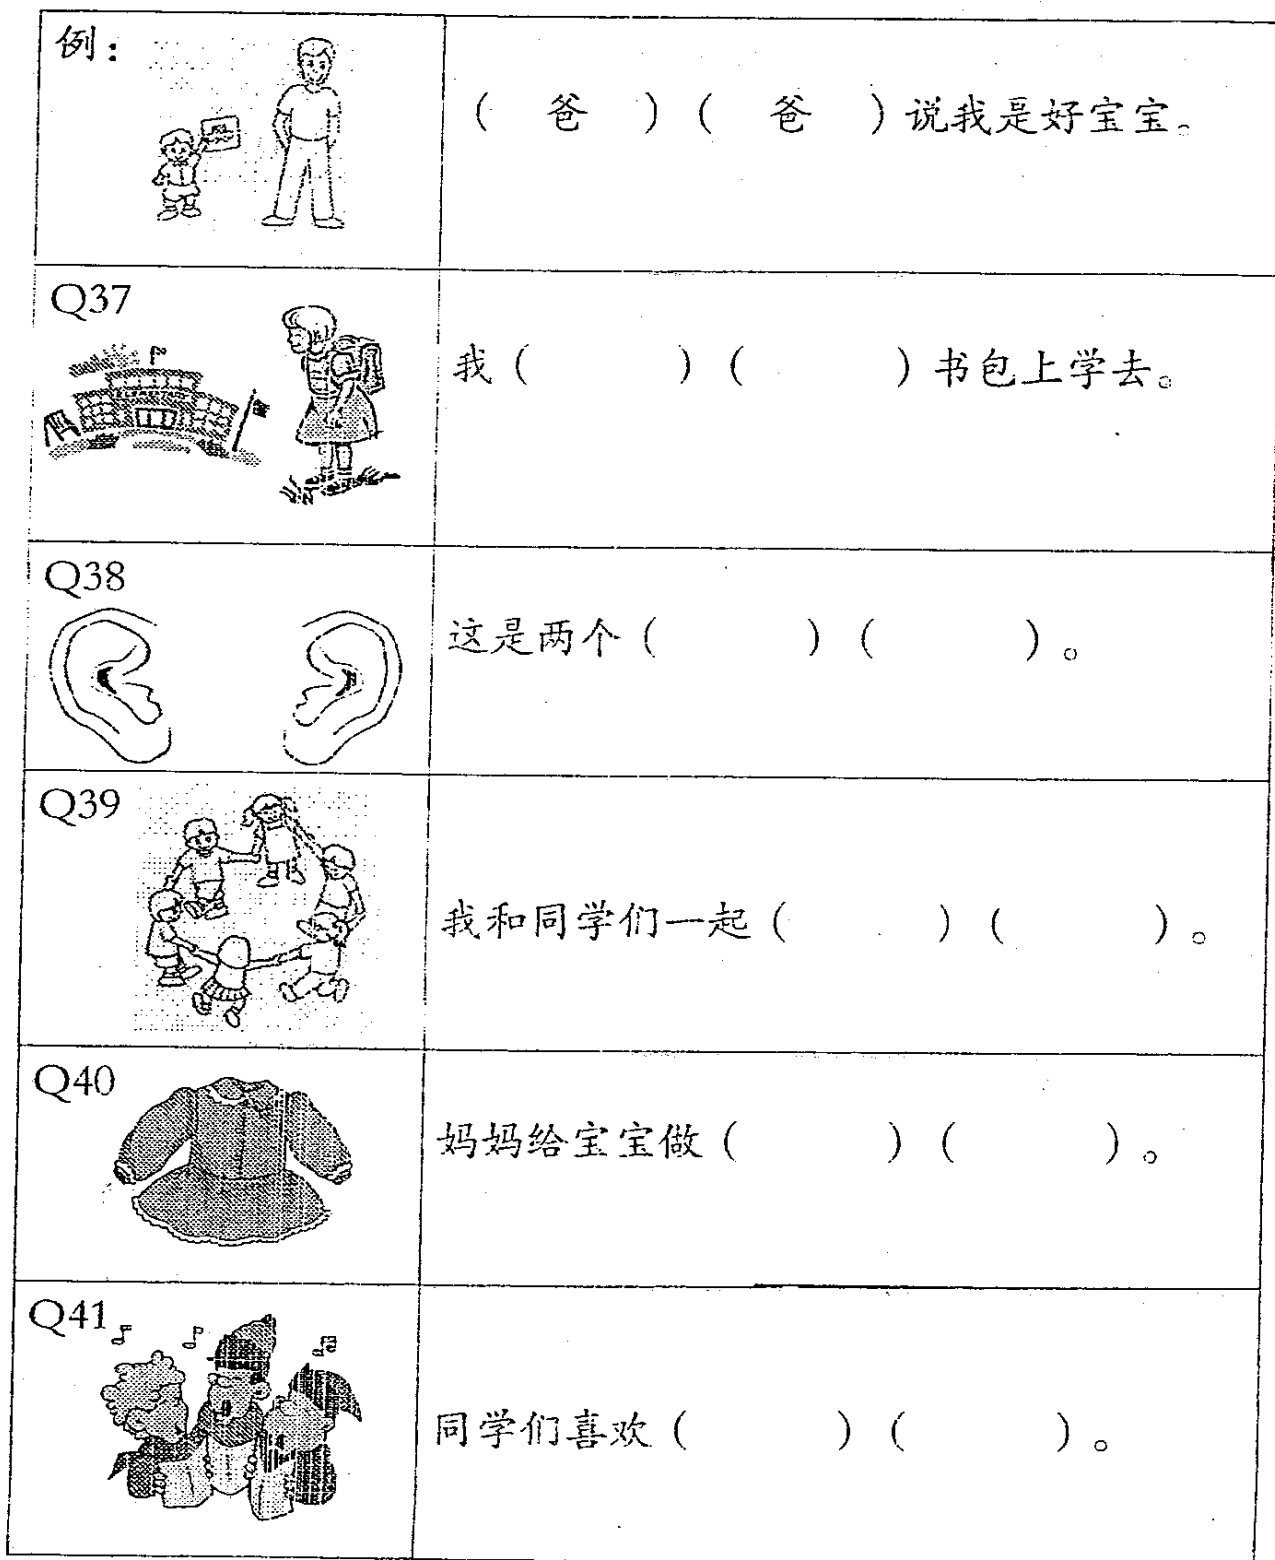 例：
（ 爸 ）（ 爸 ）说我是好宝宝。
Q37
我（ ）（ ）书包上学去。
Q38
这是两个（ ）（ ）。
Q39
我和同学们一起（ ）（ ）。
Q40
妈妈给宝宝做（ ）（ ）。
Q41
同学们喜欢（ ）（ ）。